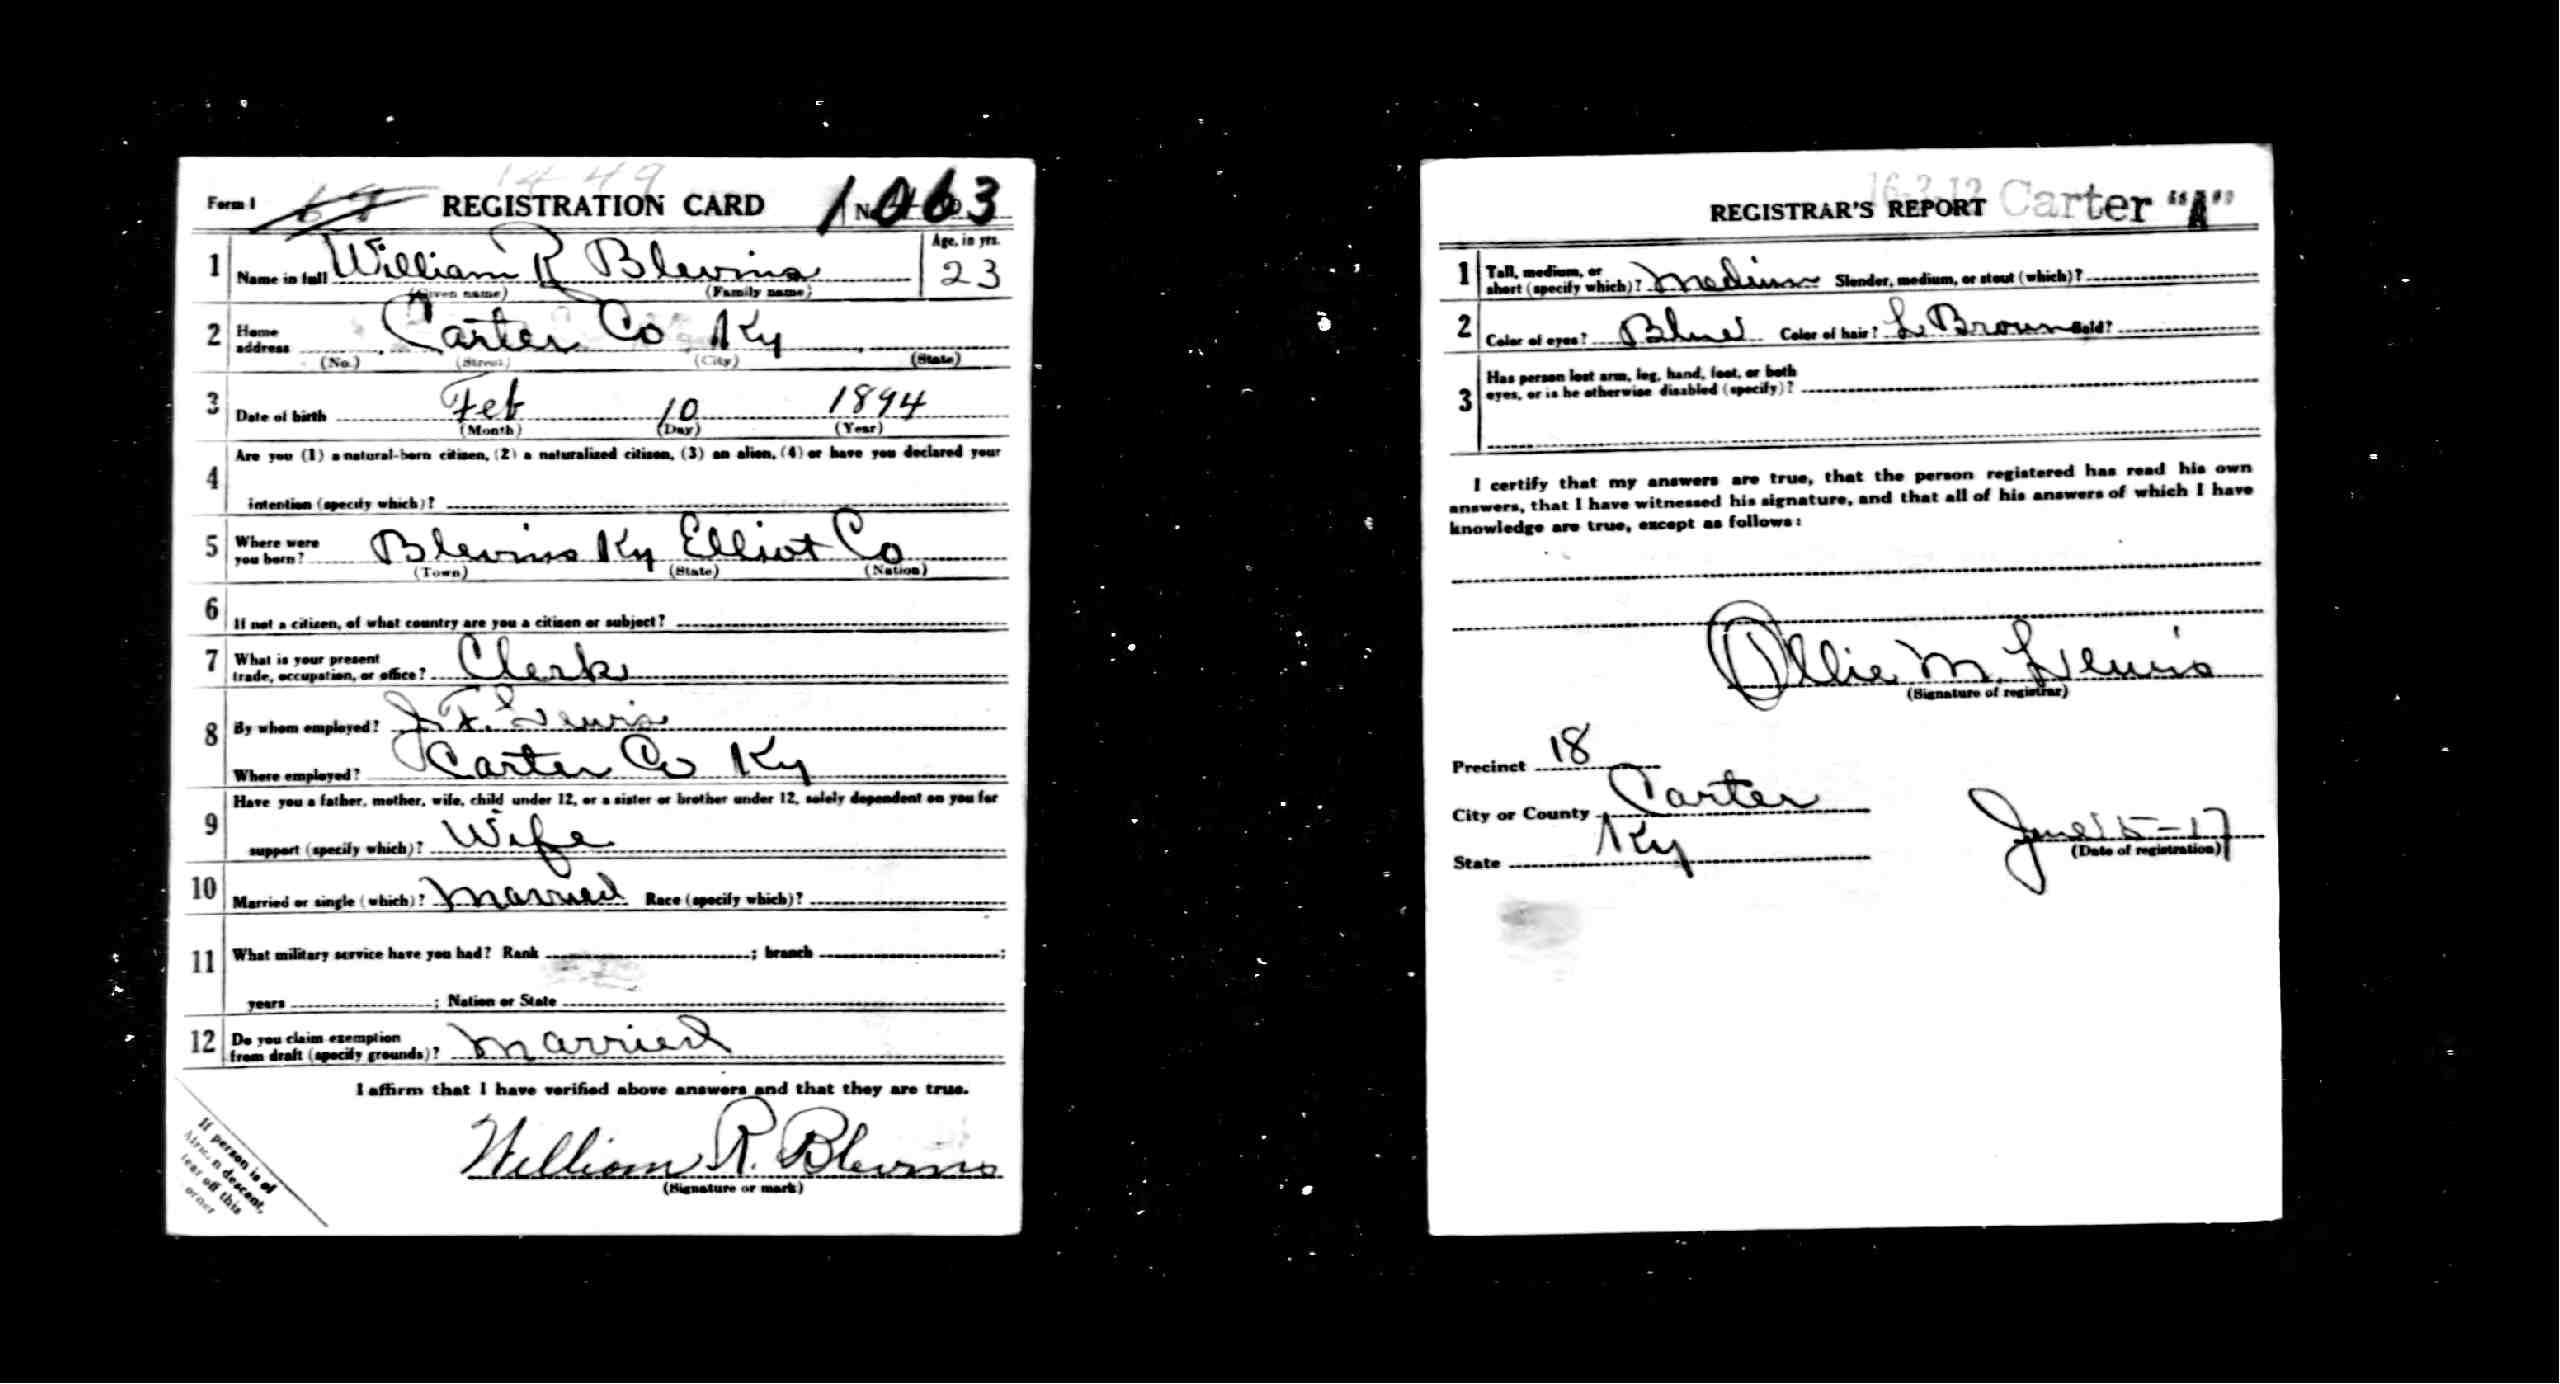 1449
Form 1 REGISTRATION CARD No. 1063
1 Name in full William R Blevins Age, in yrs. 23
(Given name) (Family name)
2 Home address Carter Co Ky
(No.) (Street) (City) (State)
3 Date of birth Feb 10 1894
(Month) (Day) (Year)
4 Are you (1) a natural-born citizen, (2) a naturalized citizen, (3) an alien, (4) or have you declared your
intention (specify which)?
5 Where were you born? Blevins Ky Elliot Co
(Town) (State) (Nation)
6 If not a citizen, of what country are you a citizen or subject?
7 What is your present trade, occupation, or office? Clerk
8 By whom employed? J. F. Lewis
Where employed? Carter Co Ky
9 Have you a father, mother, wife, child under 12, or a sister or brother under 12, solely dependent on you for
support (specify which)? Wife
10 Married or single (which)? Married Race (specify which)?
11 What military service have you had? Rank ; branch ;
years ; Nation or State
12 Do you claim exemption from draft (specify grounds)? Married
I affirm that I have verified above answers and that they are true.
William R. Blevins
(Signature or mark)
If person is of
African descent,
tear off this
corner
16-3-12 Carter "A"
REGISTRAR'S REPORT
1 Tall, medium, or short (specify which)? Medium Slender, medium, or stout (which)?
2 Color of eyes? Blue Color of hair? L. Brown Bald?
3 Has person lost arm, leg, hand, foot, or both
eyes, or is he otherwise disabled (specify)?
I certify that my answers are true, that the person registered has read his own
answers, that I have witnessed his signature, and that all of his answers of which I have
knowledge are true, except as follows:
Ollie M. Lewis
(Signature of registrar)
Precinct 18
City or County Carter
State Ky
June 5-17
(Date of registration)